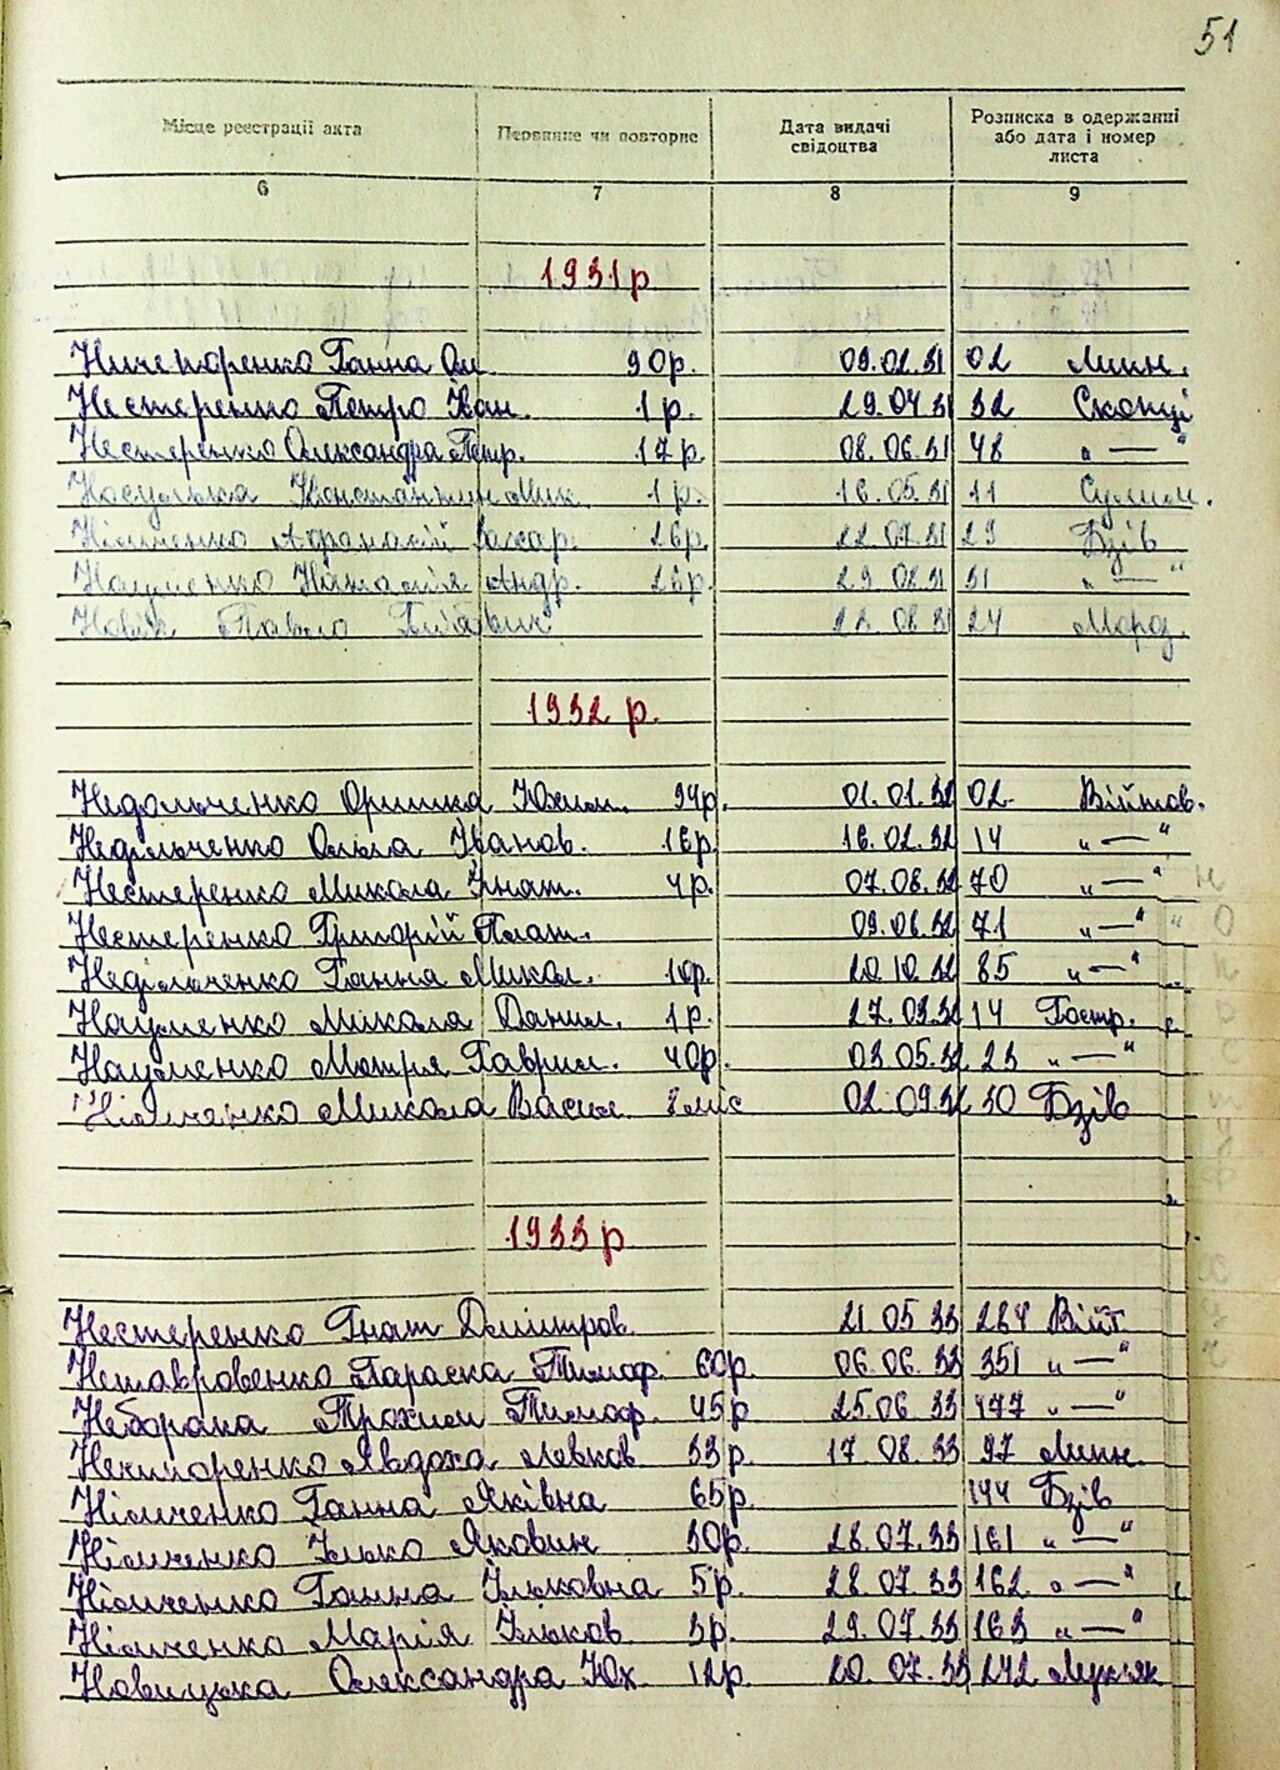 51
Місце реєстрації акта Первинне чи повторне Дата видачі свідоцтва Розписка в одержанні або дата і номер листа
6 7 8 9
1931 р
Ничепоренко Ганна Ом 90р. 09.02.31 02 Липн.
Нестеренко Петро Іван. 1р. 29.04.31 32 Скопці
Нестеренко Олександра Петр. 17р. 08.06.31 48 „ — "
Носулька Константин Мик. 1р. 16.05.31 11 Сулим.
Німченко Афанасій Захар. 26р. 22.07.31 29 Бзів
Науменко Наталія Андр. 26р. 29.08.31 31 „ — "
Новік Павло 24 Морд.
1932 р.
Недольченко Оришка Юхим. 94р. 01.01.32 02 Війтов.
Недільченко Ольга Іванов. 16р. 16.02.32 14 „ — "
Нестеренко Микола Гнат. 4р. 07.08.32 70 „ — "
Нестеренко Григорій Плат. 09.06.32 71 „ — "
Недільченко Ганна Микол. 10р. 20.10.32 85 „ — "
Науменко Микола Данил. 1р. 27.03.32 14 Гостр.
Науменко Мотря Гаврил. 40р. 03.05.32 23 „ — "
Німченко Микола Васил 8 міс 02.09.32 30 Бзів
1933 р
Нестеренко Гнат Дмитров. 21.05 33 264 Війт
Неповровенко Параска Тимоф. 60р. 06.06.33 351 „ — "
Неборака Трохим Тимоф. 45р 25.06.33 477 „ — "
Ничипоренко Явдоха Левков 33р. 17.08.33 97 Липн.
Німченко Ганна Яківна 65р. 144 Бзів
Німченко Ілько Якович 30р. 28.07.33 161 „ — "
Німченко Ганна Ільковна 5р. 28.07.33 162 „ — "
Німченко Марія Ільков. 3р. 29.07.33 163 „ — "
Новицька Олександра Юх. 12р. 20.07.33 242 Лук'як